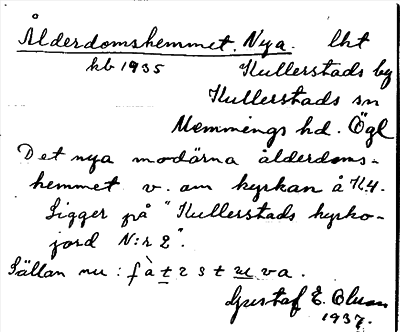 Ålderdomshemmet, Nya. lht
kb 1935 Kullerstads by
Kullerstads sn
Memmings hd. Ögl
Det nya modärna ålderdoms-
hemmet v. om kyrkan å K4.
Ligger på "Kullerstads kyrko-
jord N:r 2".
Sällan nu: fàt2stuva.
Gustaf E. Blum
1937.